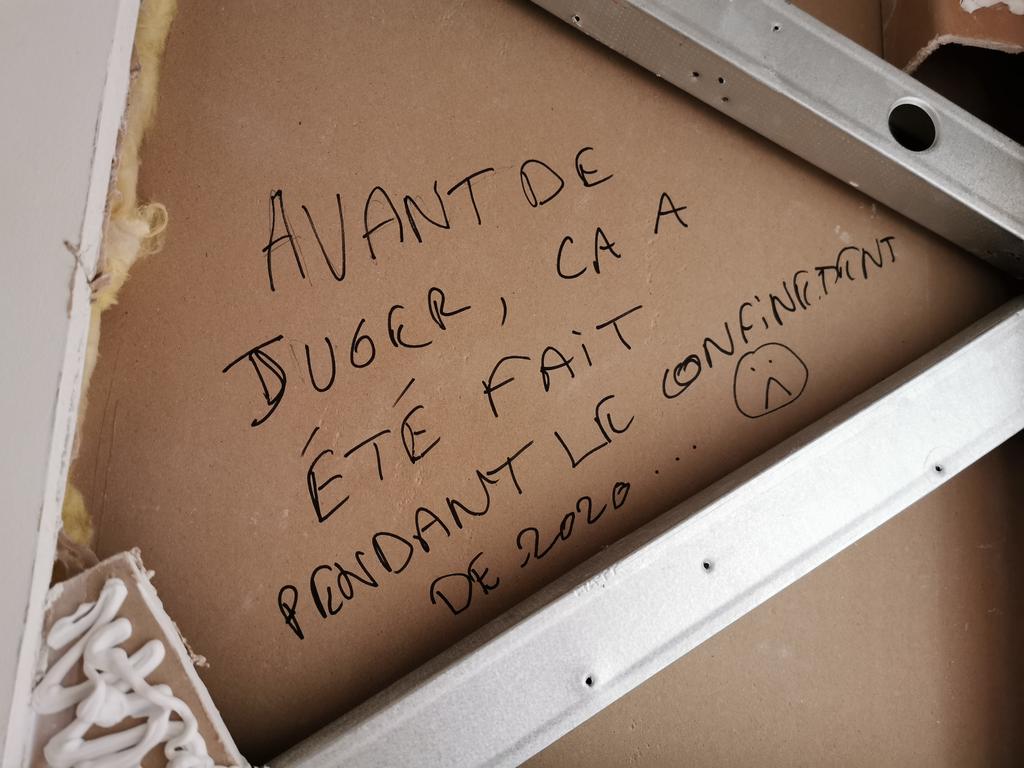 AVANT DE
JUGER, CA A
ÉTÉ FAIT
PENDANT LE CONFINEMENT
DE 2020...